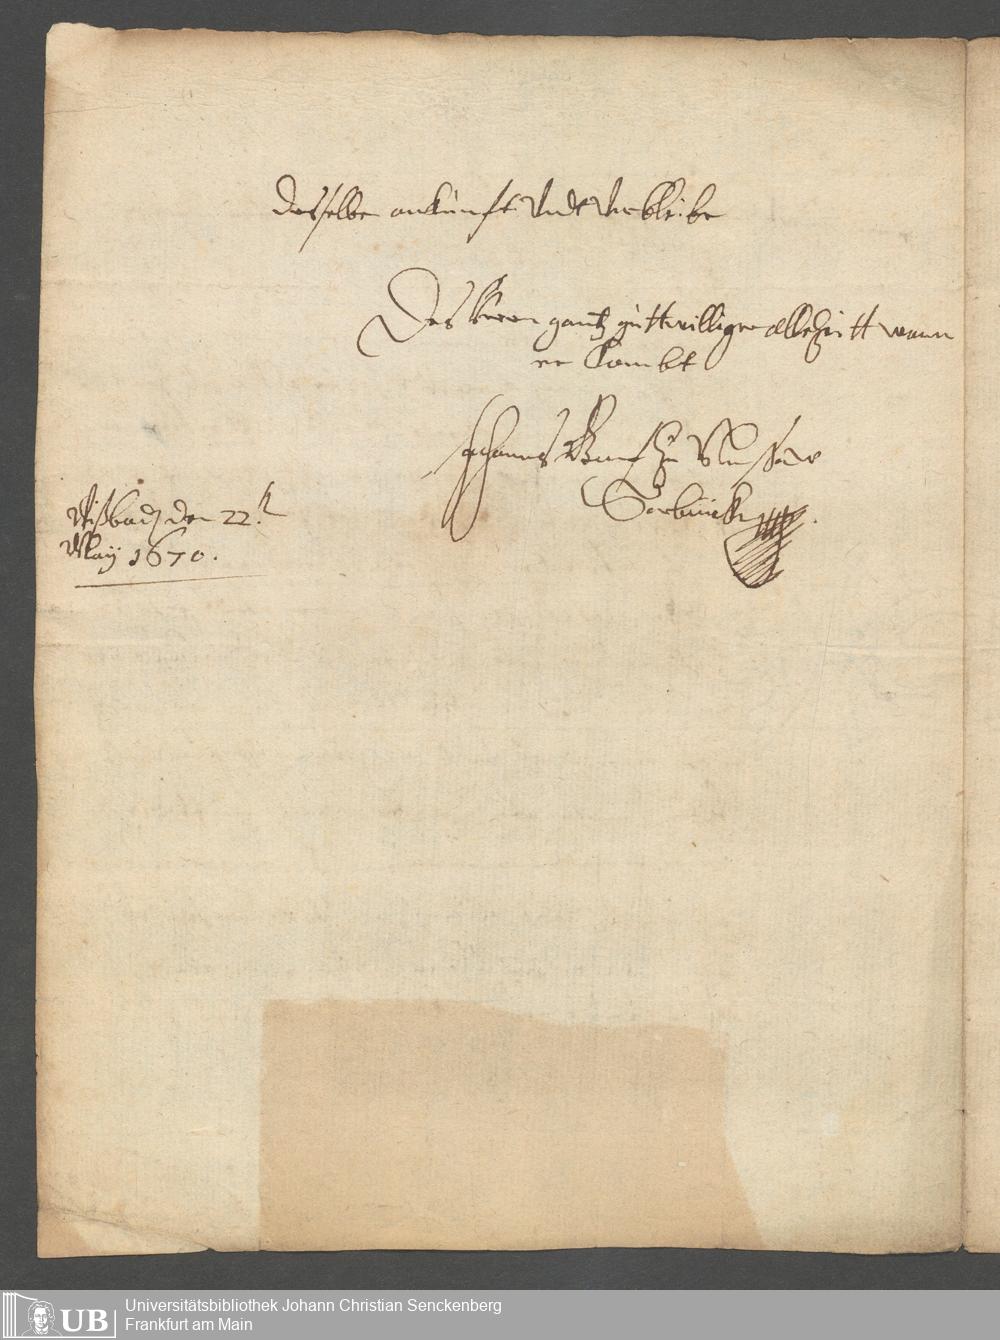 desselben ankunft Undt Verbleibe
Des herrn gantz guttwilliger allezeitt wann
er kombt
Johannes Graff zu Nassaw
Sarbrücken
Wißbad den 22.
May 1670.
Universitätsbibliothek Johann Christian Senckenberg
Frankfurt am Main
UB